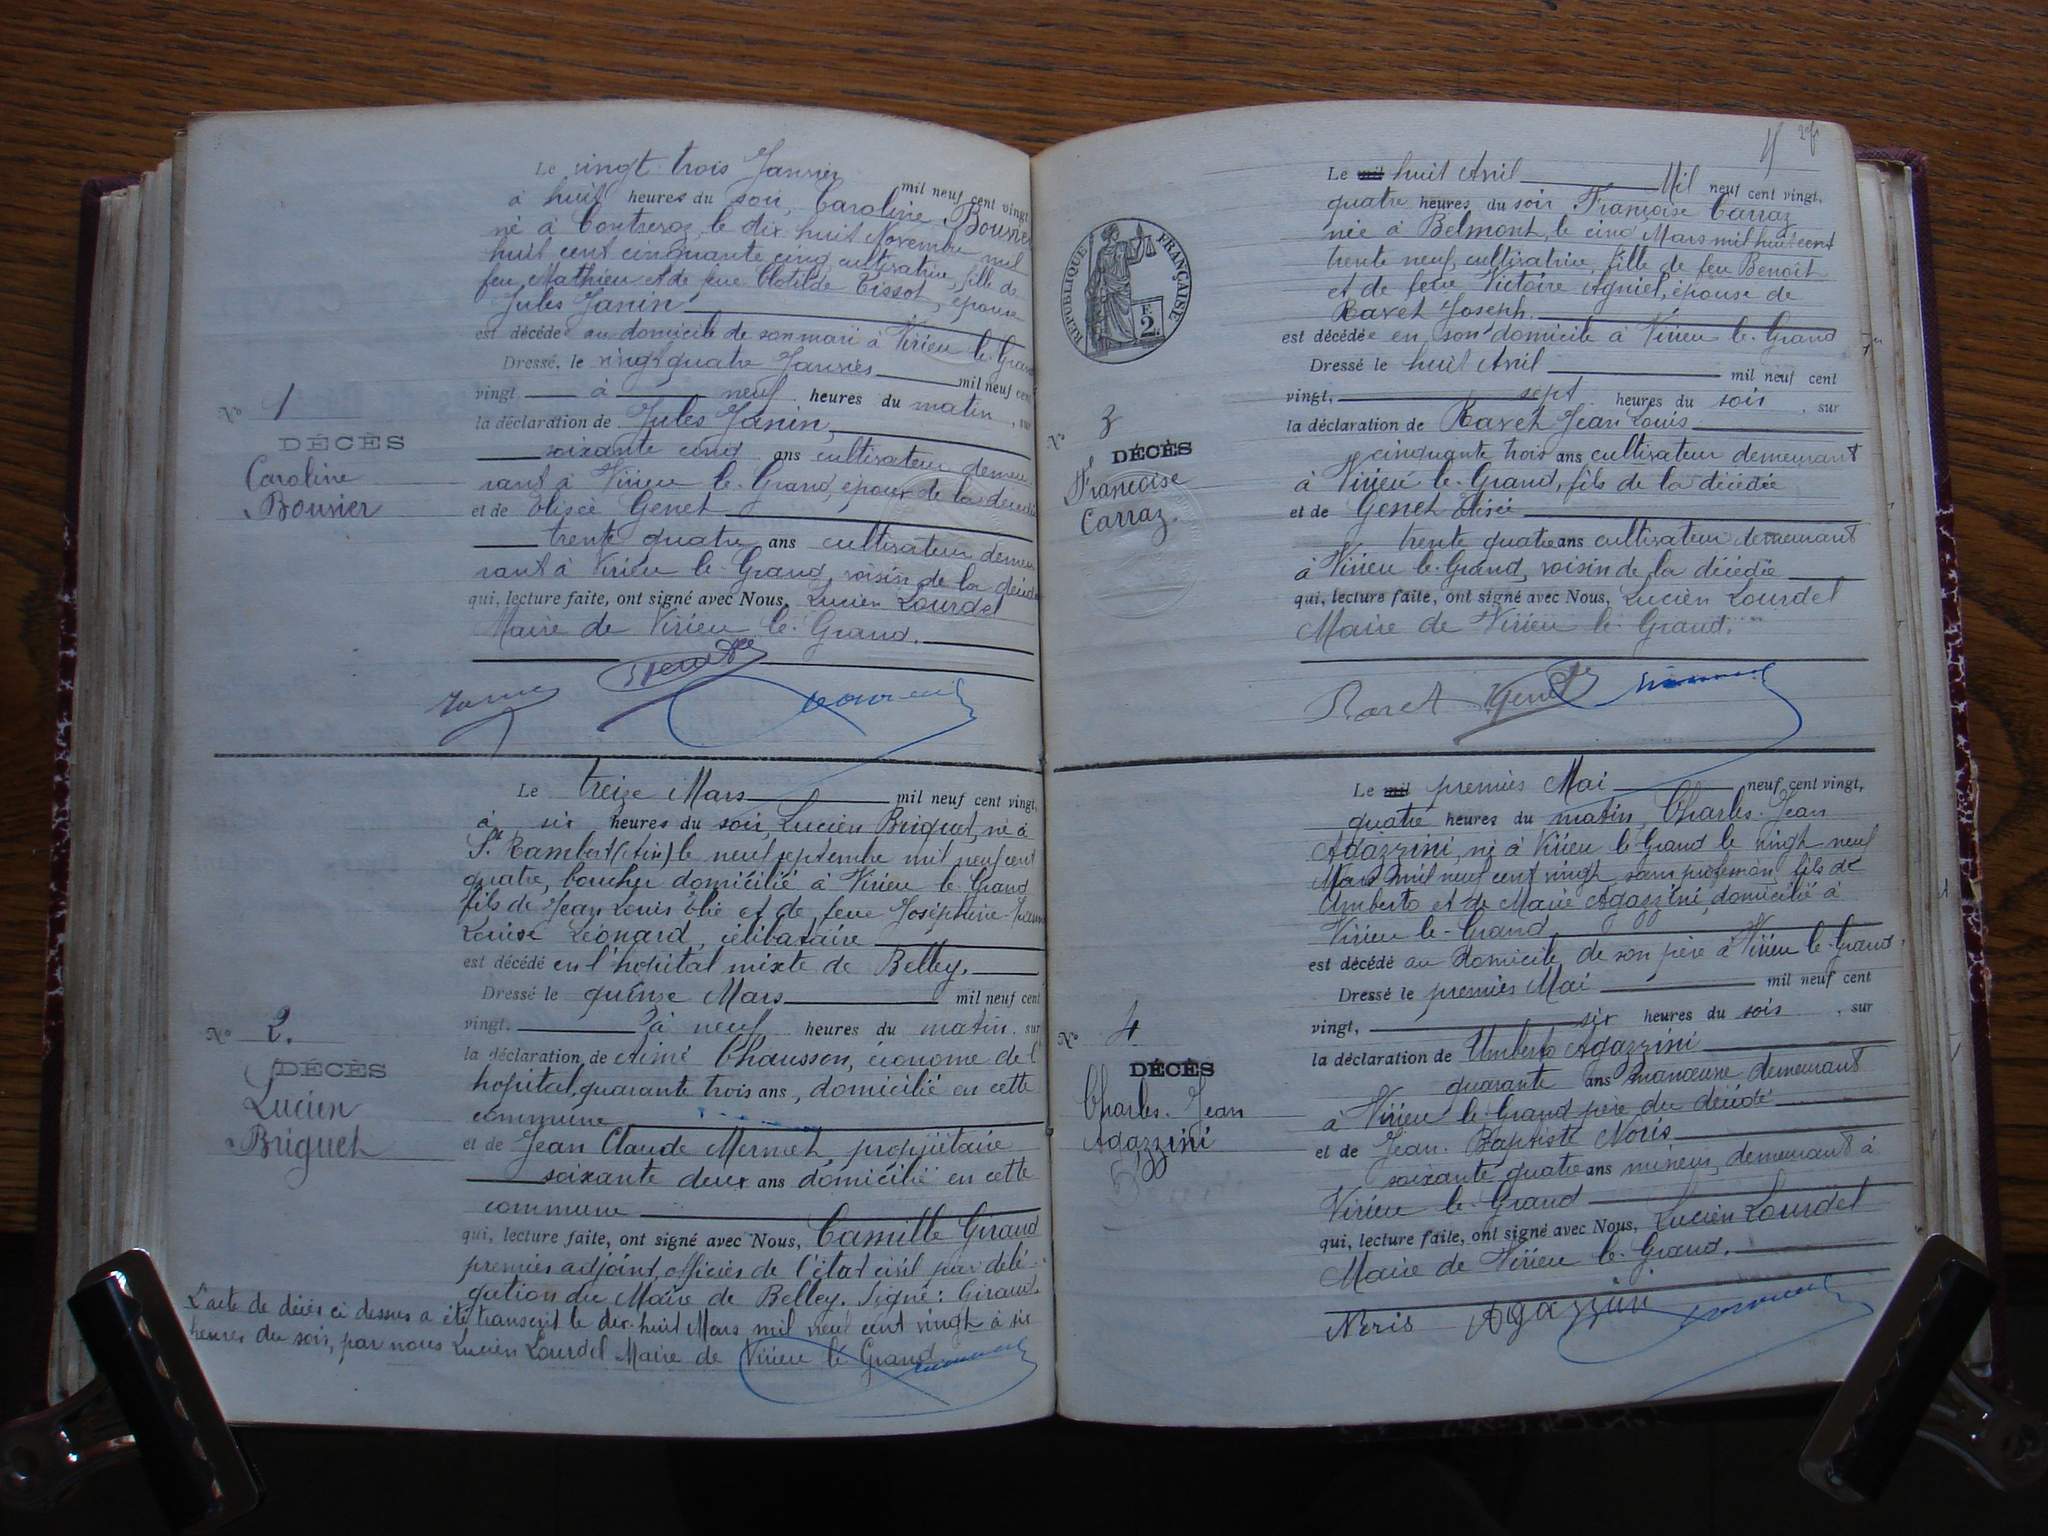 Le vingt trois Janvier mil neuf cent vingt
à huit heures du soir, Caroline Bouvier
né à Contrevoz, le dix huit Novembre mil
huit cent cinquante cinq cultivatrice, fille de
feu Mathieu et de feue Clotilde Tissot, épouse
Jules Janin
est décédée au domicile de son mari à Virieu le Grand
Dressé, le vingt quatre Janvier mil neuf cent
vingt à neuf heures du matin, sur
la déclaration de Jules Janin,
soixante cinq ans cultivateur demeu
rant à Virieu le Grand, époux de la décédée
et de Elisée Genet
trente quatre ans cultivateur demeu
rant à Virieu le Grand, voisin de la décédée
qui, lecture faite, ont signé avec Nous, Lucien Lourdel
Maire de Virieu le Grand.
No 1
DÉCÈS
Caroline
Bouvier
Le treize Mars mil neuf cent vingt,
à six heures du soir, Lucien Briquet, né à
St Rambert (Ain) le neuf septembre mil neuf cent
quatre, boucher domicilié à Virieu le Grand
fils de Jean Louis Elie et de feue Joséphine
Louise Léonard, célibataire
est décédé en l'hopital mixte de Belley.
Dressé le quinze Mars mil neuf cent
vingt. à neuf heures du matin sur
la déclaration de Aimé Chausson, économe de l'
hopital, quarante trois ans, domicilié en cette
commune
et de Jean Claude Mernet, propriétaire
soixante deux ans domicilié en cette
commune
qui, lecture faite, ont signé avec Nous, Camille Giraud
premier adjoint, officier de l'état civil par délé
gation du Maire de Belley. Signé: Giraud.
L'acte de décès ci dessus a été transcrit le dix-huit Mars mil neuf cent vingt à six
heures du soir, par nous Lucien Lourdel Maire de Virieu le Grand
No 2.
DÉCÈS
Lucien
Briquet
RÉPUBLIQUE FRANÇAISE
2
Le mil huit Avril Mil neuf cent vingt,
quatre heures du soir Françoise Carraz
née à Belmont, le cinq Mars mil huit cent
trente neuf, cultivatrice, fille de feu Benoît
et de feue Victoire Agniel, épouse de
Ravet Joseph.
est décédée en son domicile à Virieu le Grand
Dressé le huit Avril mil neuf cent
vingt, sept heures du soir, sur
la déclaration de Ravet Jean Louis
cinquante trois ans cultivateur demeurant
à Virieu le Grand, fils de la décédée
et de Genet Elisée
trente quatre ans cultivateur demeurant
à Virieu le Grand, voisin de la décédée
qui, lecture faite, ont signé avec Nous, Lucien Lourdel
Maire de Virieu le Grand.
Ravet Genet
No 3
DÉCÈS
Françoise
Carraz.
Le mil premier Mai neuf cent vingt,
quatre heures du matin, Charles Jean
Agazzini, né à Virieu le Grand le vingt neuf
Mars mil neuf cent vingt, sans profession fils de
Umberto et de Marie Agazzini, domicilié à
Virieu le Grand
est décédé au domicile de son père à Virieu le Grand.
Dressé le premier Mai mil neuf cent
vingt, six heures du soir, sur
la déclaration de Umberto Agazzini
quarante ans manœuvre demeurant
à Virieu le Grand père du décédé
et de Jean Baptiste Noris
soixante quatre ans mineur, demeurant à
Virieu le Grand
qui, lecture faite, ont signé avec Nous, Lucien Lourdel
Maire de Virieu le Grand.
Noris Agazzini
No 4
DÉCÈS
Charles Jean
Agazzini